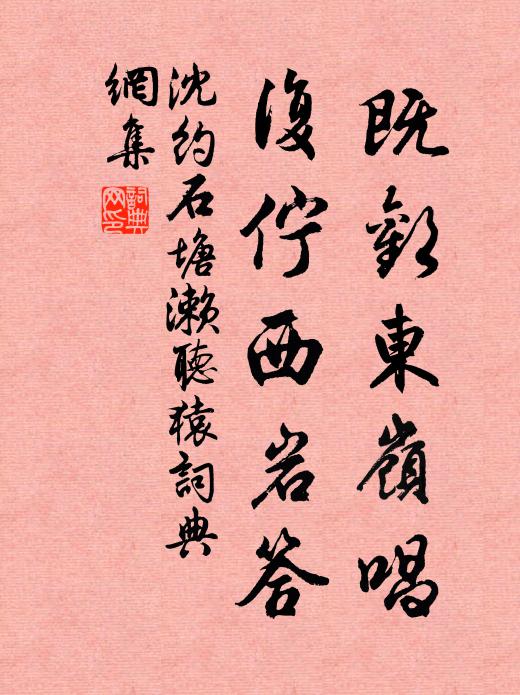 既歡東嶺唱
復佇西岩答
沈約石塘瀨聽猿詞典
網集
詞典網印